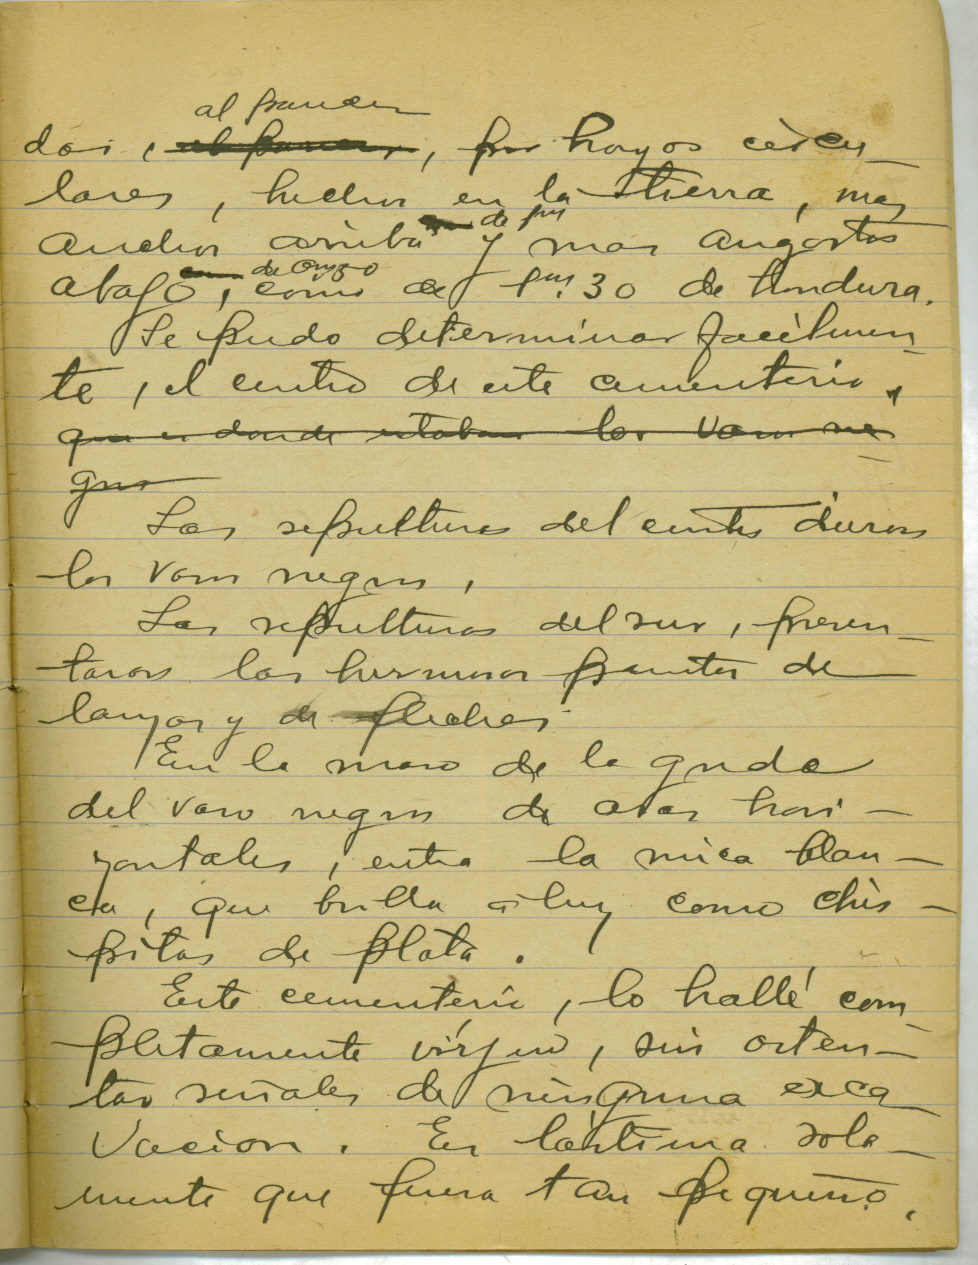 al parecer
dos, al parecer, por hoyos circu-
lares, hechos en la tierra, mas
anchos arriba y mas angostos
abajo, como de 1m.30 de hondura.
Se pudo determinar facilmen-
te, el centro de este cementerio,
que es donde estaban los vasos ne-
gros
Las sepulturas del centro dieron
los vasos negros.
Las sepulturas del sur, presen-
taron las hermosas puntas de
lanzas y de flechas
En la masa de la greda
del vaso negro de asas hori-
zontales, entra la mica blan-
ca, que brilla á luz como chis-
pitas de plata.
Este cementerio, lo hallé com
pletamente vírjen, sin osten-
tar señales de ninguna exca-
vacion. Es lástima sola-
mente que fuera tan pequeño.